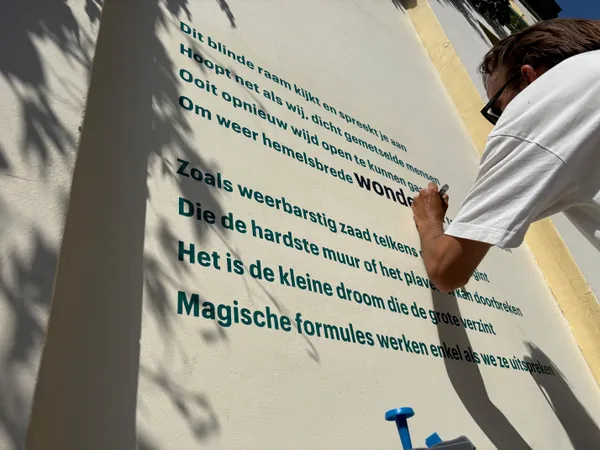 Dit blinde raam kijkt en spreekt je aan
Hoopt net als wij, dicht gemetselde mensen
Ooit opnieuw wijd open te kunnen
Om weer hemelsbrede
Zoals weerbarstig zaad telkens
Die de hardste muur of het kan doorbreken
Het is de kleine droom die de grote verzint
Magische formules werken enkel als we ze uitspreken